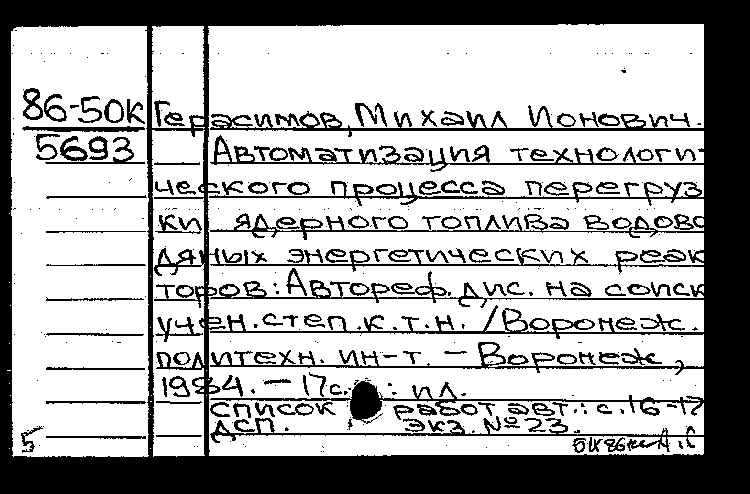 86-50к Герасимов, Михаил Ионович.
5693 Автоматизация технологи-
ческого процесса перегруз
ки ядерного топлива водово
дяных энергетических реак
торов: Автореф. дис. на соиск
учен. степ. к.т.н. /Воронеж.
политехн. ин-т. – Воронеж,
1984. – 17с. : ил.
список работ авт.: с.16-17
ДСП. Экз. №23.
5